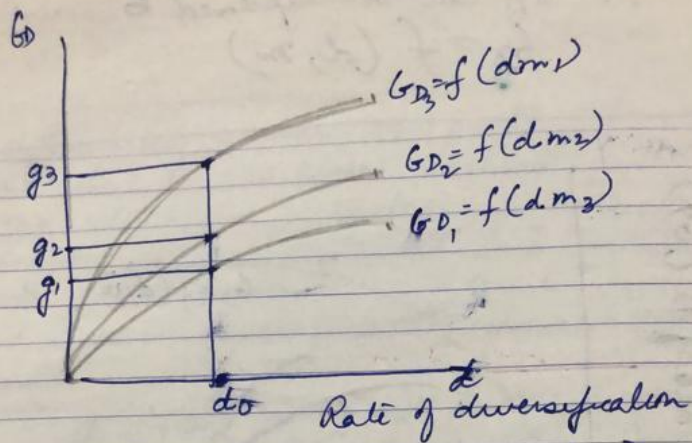 GD
GD3 = f(d m1)
GD2 = f(d m2)
GD1 = f(d m3)
g3
g2
g1
do
d
Rate of diversification